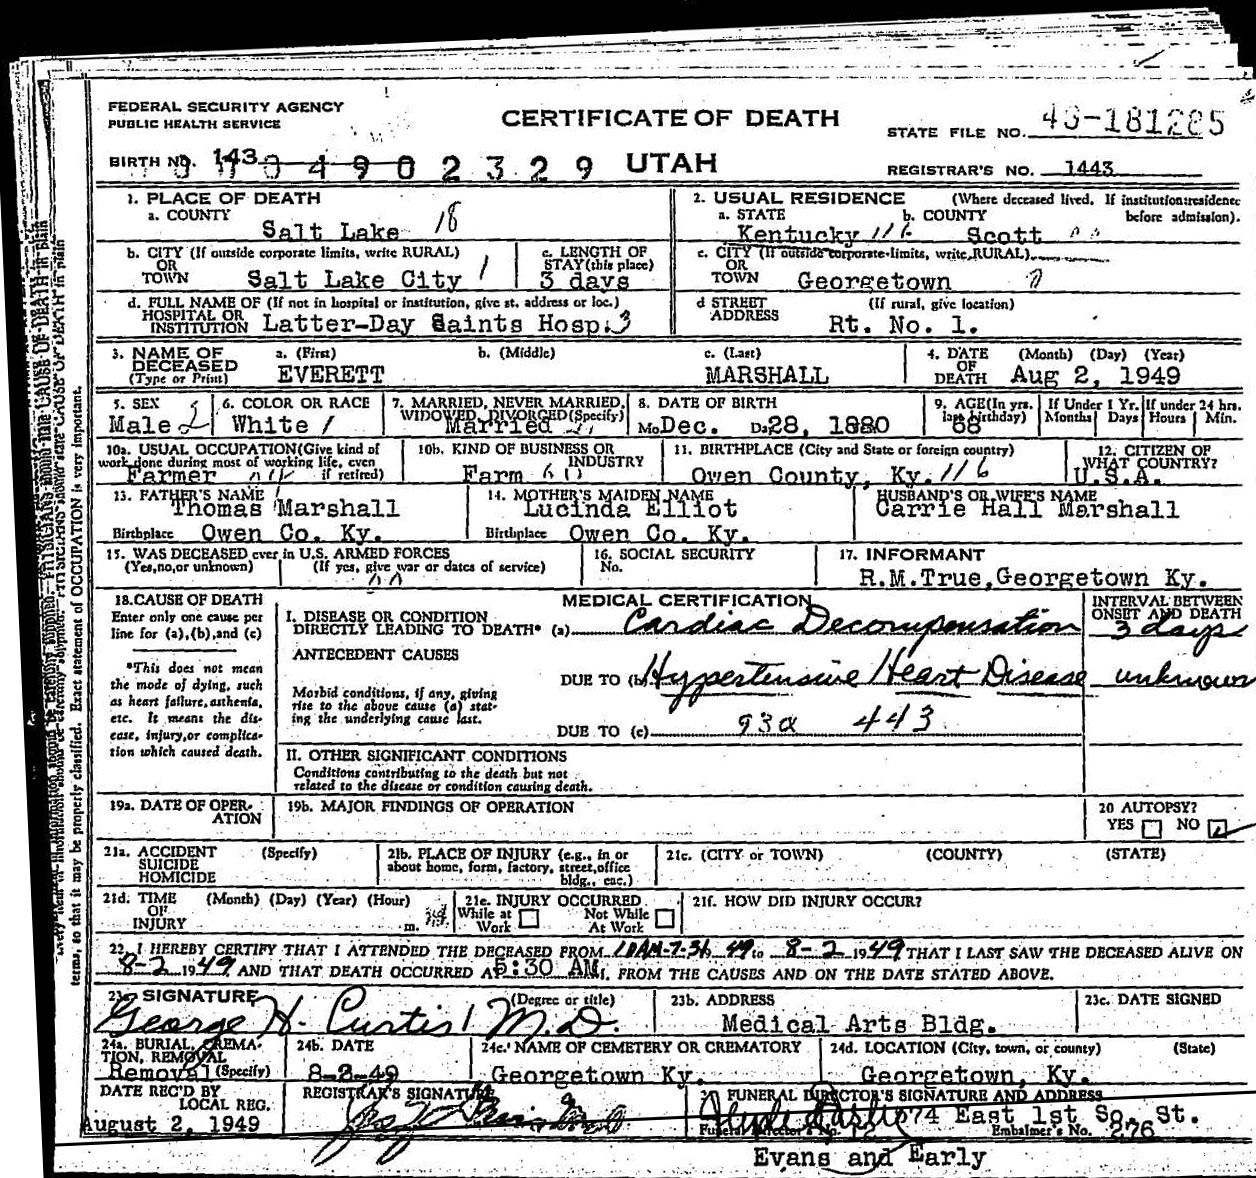 FEDERAL SECURITY AGENCY
PUBLIC HEALTH SERVICE
CERTIFICATE OF DEATH
STATE FILE NO. 49-181285
BIRTH NO. 143
0 4 9 0 2 3 2 9
UTAH
REGISTRAR'S NO. 1443
1. PLACE OF DEATH
a. COUNTY
Salt Lake 18
2. USUAL RESIDENCE (Where deceased lived. If institution: residence before admission).
a. STATE
Kentucky 116
b. COUNTY
Scott
b. CITY (If outside corporate limits, write RURAL)
OR
TOWN Salt Lake City 1
c. LENGTH OF
STAY (this place)
3 days
c. CITY (If outside corporate limits, write RURAL)
OR
TOWN Georgetown
d. FULL NAME OF (If not in hospital or institution, give st. address or loc.)
HOSPITAL OR
INSTITUTION Latter-Day Saints Hosp. 3
d STREET (If rural, give location)
ADDRESS
Rt. No. 1.
3. NAME OF
DECEASED
(Type or Print)
a. (First)
EVERETT
b. (Middle)
c. (Last)
MARSHALL
4. DATE (Month) (Day) (Year)
OF
DEATH Aug 2, 1949
5. SEX
Male 2
6. COLOR OR RACE
White 1
7. MARRIED, NEVER MARRIED,
WIDOWED, DIVORCED (Specify)
Married
8. DATE OF BIRTH
Mo Dec. Da 28, 1880
9. AGE (In yrs.
last birthday)
68
If Under 1 Yr.
Months Days
If under 24 hrs.
Hours Min.
10a. USUAL OCCUPATION (Give kind of
work done during most of working life, even
if retired)
Farmer
10b. KIND OF BUSINESS OR
INDUSTRY
Farm
11. BIRTHPLACE (City and State or foreign country)
Owen County, Ky. 116
12. CITIZEN OF
WHAT COUNTRY?
U.S.A.
13. FATHER'S NAME
Thomas Marshall
Birthplace Owen Co. Ky.
14. MOTHER'S MAIDEN NAME
Lucinda Elliot
Birthplace Owen Co. Ky.
HUSBAND'S OR WIFE'S NAME
Carrie Hall Marshall
15. WAS DECEASED ever in U.S. ARMED FORCES
(Yes, no, or unknown) (If yes, give war or dates of service)
16. SOCIAL SECURITY
No.
17. INFORMANT
R.M.True, Georgetown Ky.
18. CAUSE OF DEATH
Enter only one cause per
line for (a), (b), and (c)
*This does not mean
the mode of dying, such
as heart failure, asthenia,
etc. It means the dis-
ease, injury, or complica-
tion which caused death.
MEDICAL CERTIFICATION
I. DISEASE OR CONDITION
DIRECTLY LEADING TO DEATH* (a) Cardiac Decompensation
ANTECEDENT CAUSES
DUE TO (b) Hypertensive Heart Disease
Morbid conditions, if any, giving
rise to the above cause (a) stat-
ing the underlying cause last.
DUE TO (c) 93a 443
INTERVAL BETWEEN
ONSET AND DEATH
3 days
unknown
II. OTHER SIGNIFICANT CONDITIONS
Conditions contributing to the death but not
related to the disease or condition causing death.
19a. DATE OF OPER-
ATION
19b. MAJOR FINDINGS OF OPERATION
20 AUTOPSY?
YES NO
21a. ACCIDENT (Specify)
SUICIDE
HOMICIDE
21b. PLACE OF INJURY (e.g., in or
about home, form, factory, street, office
bldg., enc.)
21c. (CITY or TOWN) (COUNTY) (STATE)
21d. TIME (Month) (Day) (Year) (Hour)
OF
INJURY m.
21e. INJURY OCCURRED
While at Work Not While At Work
21f. HOW DID INJURY OCCUR?
22. I HEREBY CERTIFY THAT I ATTENDED THE DECEASED FROM 10AM-7-31, 49 to 8-2 1949 THAT I LAST SAW THE DECEASED ALIVE ON
8-2 1949 AND THAT DEATH OCCURRED AT 5:30 AM. FROM THE CAUSES AND ON THE DATE STATED ABOVE.
23a SIGNATURE (Degree or title)
George H. Curtis M.D.
23b. ADDRESS
Medical Arts Bldg.
23c. DATE SIGNED
24a. BURIAL, CREMA-
TION, REMOVAL
Removal (Specify)
24b. DATE
8-3-49
24c. NAME OF CEMETERY OR CREMATORY
Georgetown Ky.
24d. LOCATION (City, town, or county) (State)
Georgetown, Ky.
DATE REC'D BY
LOCAL REG.
August 2, 1949
REGISTRAR'S SIGNATURE
FUNERAL DIRECTOR'S SIGNATURE AND ADDRESS
574 East 1st So. St.
Funeral Director's No. 12 Embalmer's No. 276
Evans and Early
terms, so that it may be properly classified. Exact statement of OCCUPATION is very important.